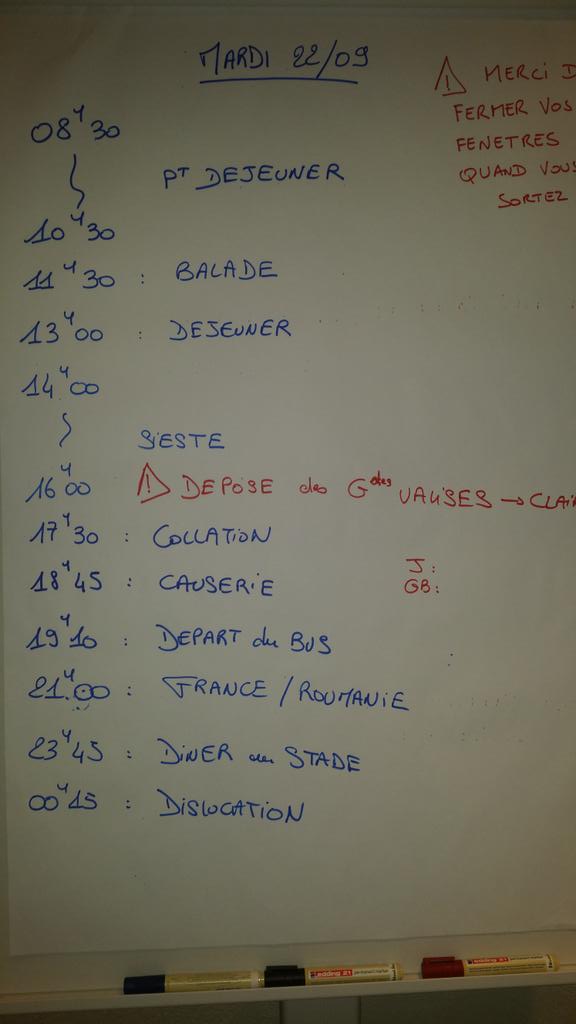 MARDI 22/09
⚠ MERCI D
FERMER VOS
FENETRES
QUAND VOUS
SORTEZ
08H30
PT DEJEUNER
10H30
11H30 : BALADE
13H00 : DEJEUNER
14H00
SIESTE
16H00 ⚠ DEPOSE des Gdes VALISES → CLAI
17H30 : COLLATION
J:
18H45 : CAUSERIE
GB:
19H10 : DEPART du BUS
21H00 : FRANCE / ROUMANIE
23H45 : DINER au STADE
00H15 : DISLOCATION
edding 21 permanent marker
edding 21